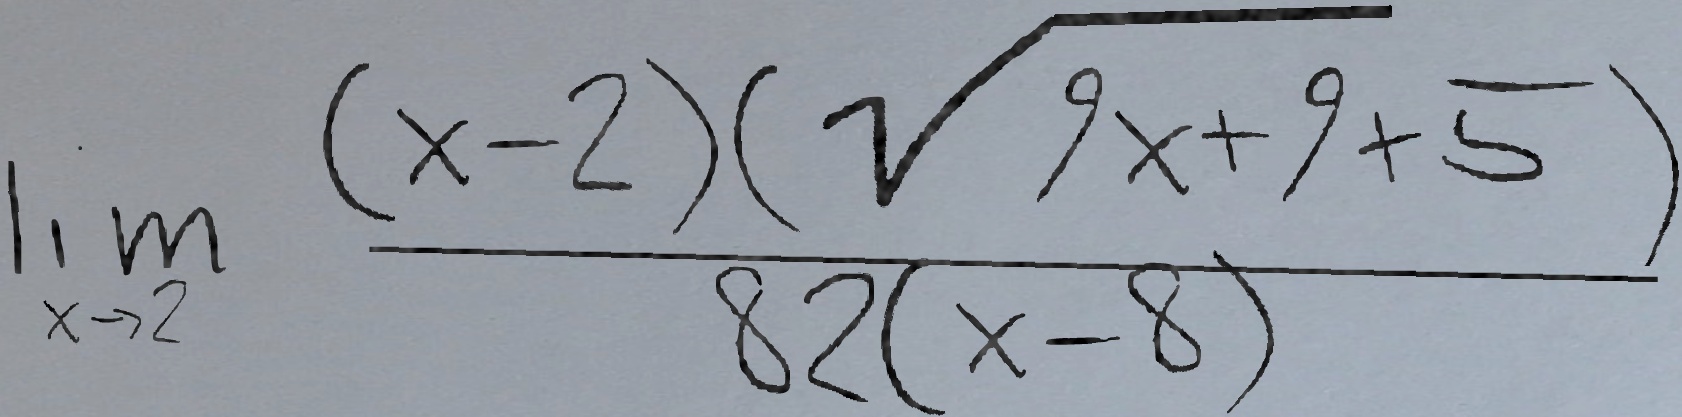 \lim_{x \to 2} \frac{(x-2)(\sqrt{9x+9}+5)}{82(x-8)}